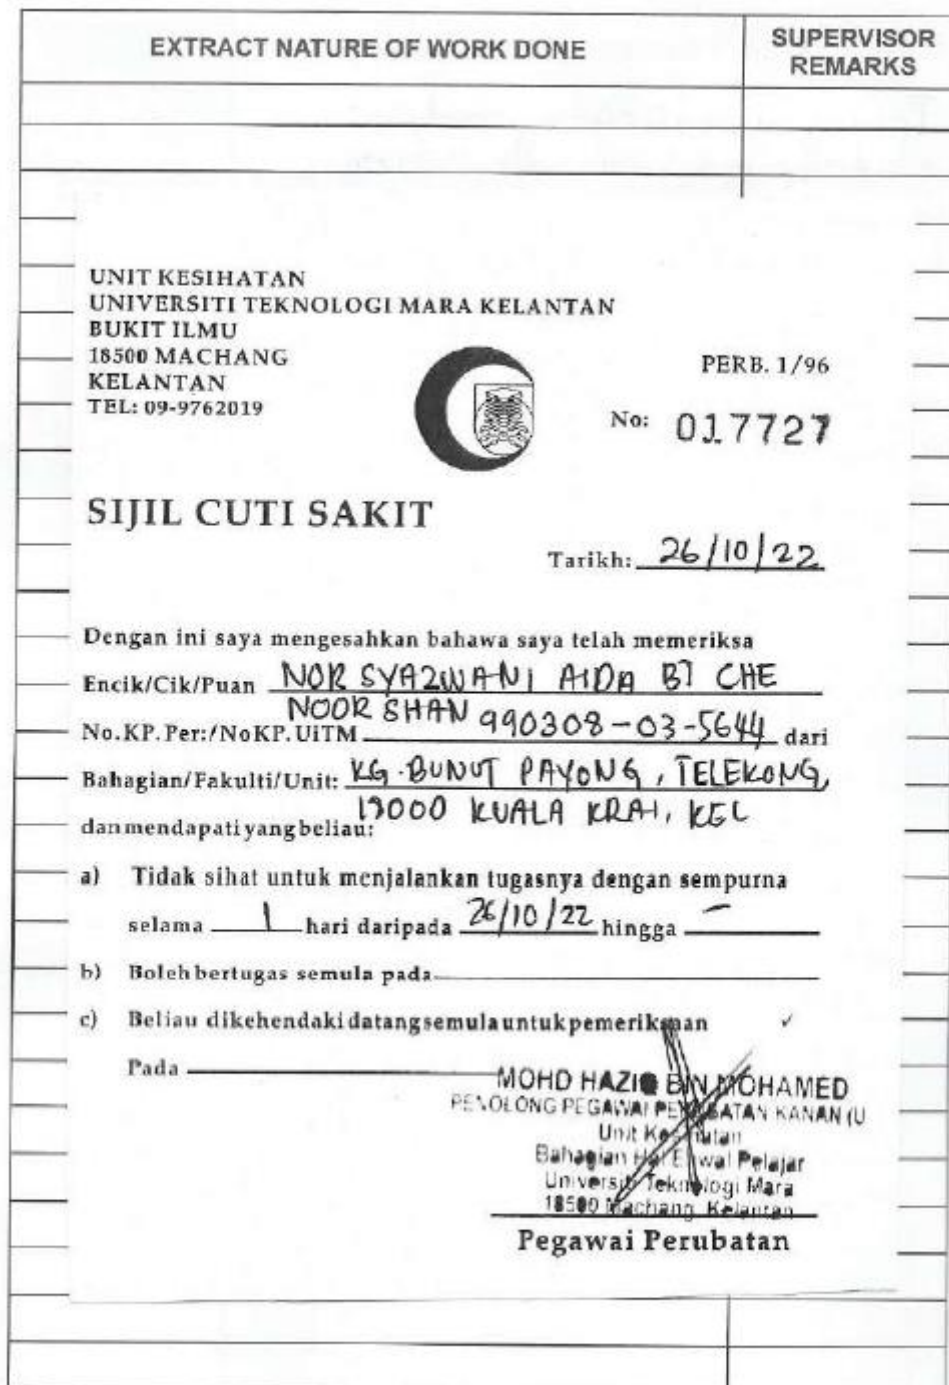 EXTRACT NATURE OF WORK DONE
SUPERVISOR
REMARKS
UNIT KESIHATAN
UNIVERSITI TEKNOLOGI MARA KELANTAN
BUKIT ILMU
18500 MACHANG
KELANTAN
TEL: 09-9762019
PERB. 1/96
No: 017727
SIJIL CUTI SAKIT
Tarikh: 26/10/22
Dengan ini saya mengesahkan bahawa saya telah memeriksa
Encik/Cik/Puan NOR SYAZWANI AIDA BT CHE
NOOR SHAN
No.KP.Per:/NoKP.UiTM 990308-03-5644 dari
Bahagian/Fakulti/Unit: KG. BUNUT PAYONG, TELEKONG,
18000 KUALA KRAI, KEL
dan mendapati yang beliau:
a) Tidak sihat untuk menjalankan tugasnya dengan sempurna
selama 1 hari daripada 26/10/22 hingga -
b) Boleh bertugas semula pada
c) Beliau dikehendaki datang semula untuk pemeriksaan
Pada
MOHD HAZIQ BIN MOHAMED
PENOLONG PEGAWAI PERUBATAN KANAN (U
Unit Kesihatan
Bahagian Hal Ehwal Pelajar
Universiti Teknologi Mara
18500 Machang, Kelantan
Pegawai Perubatan